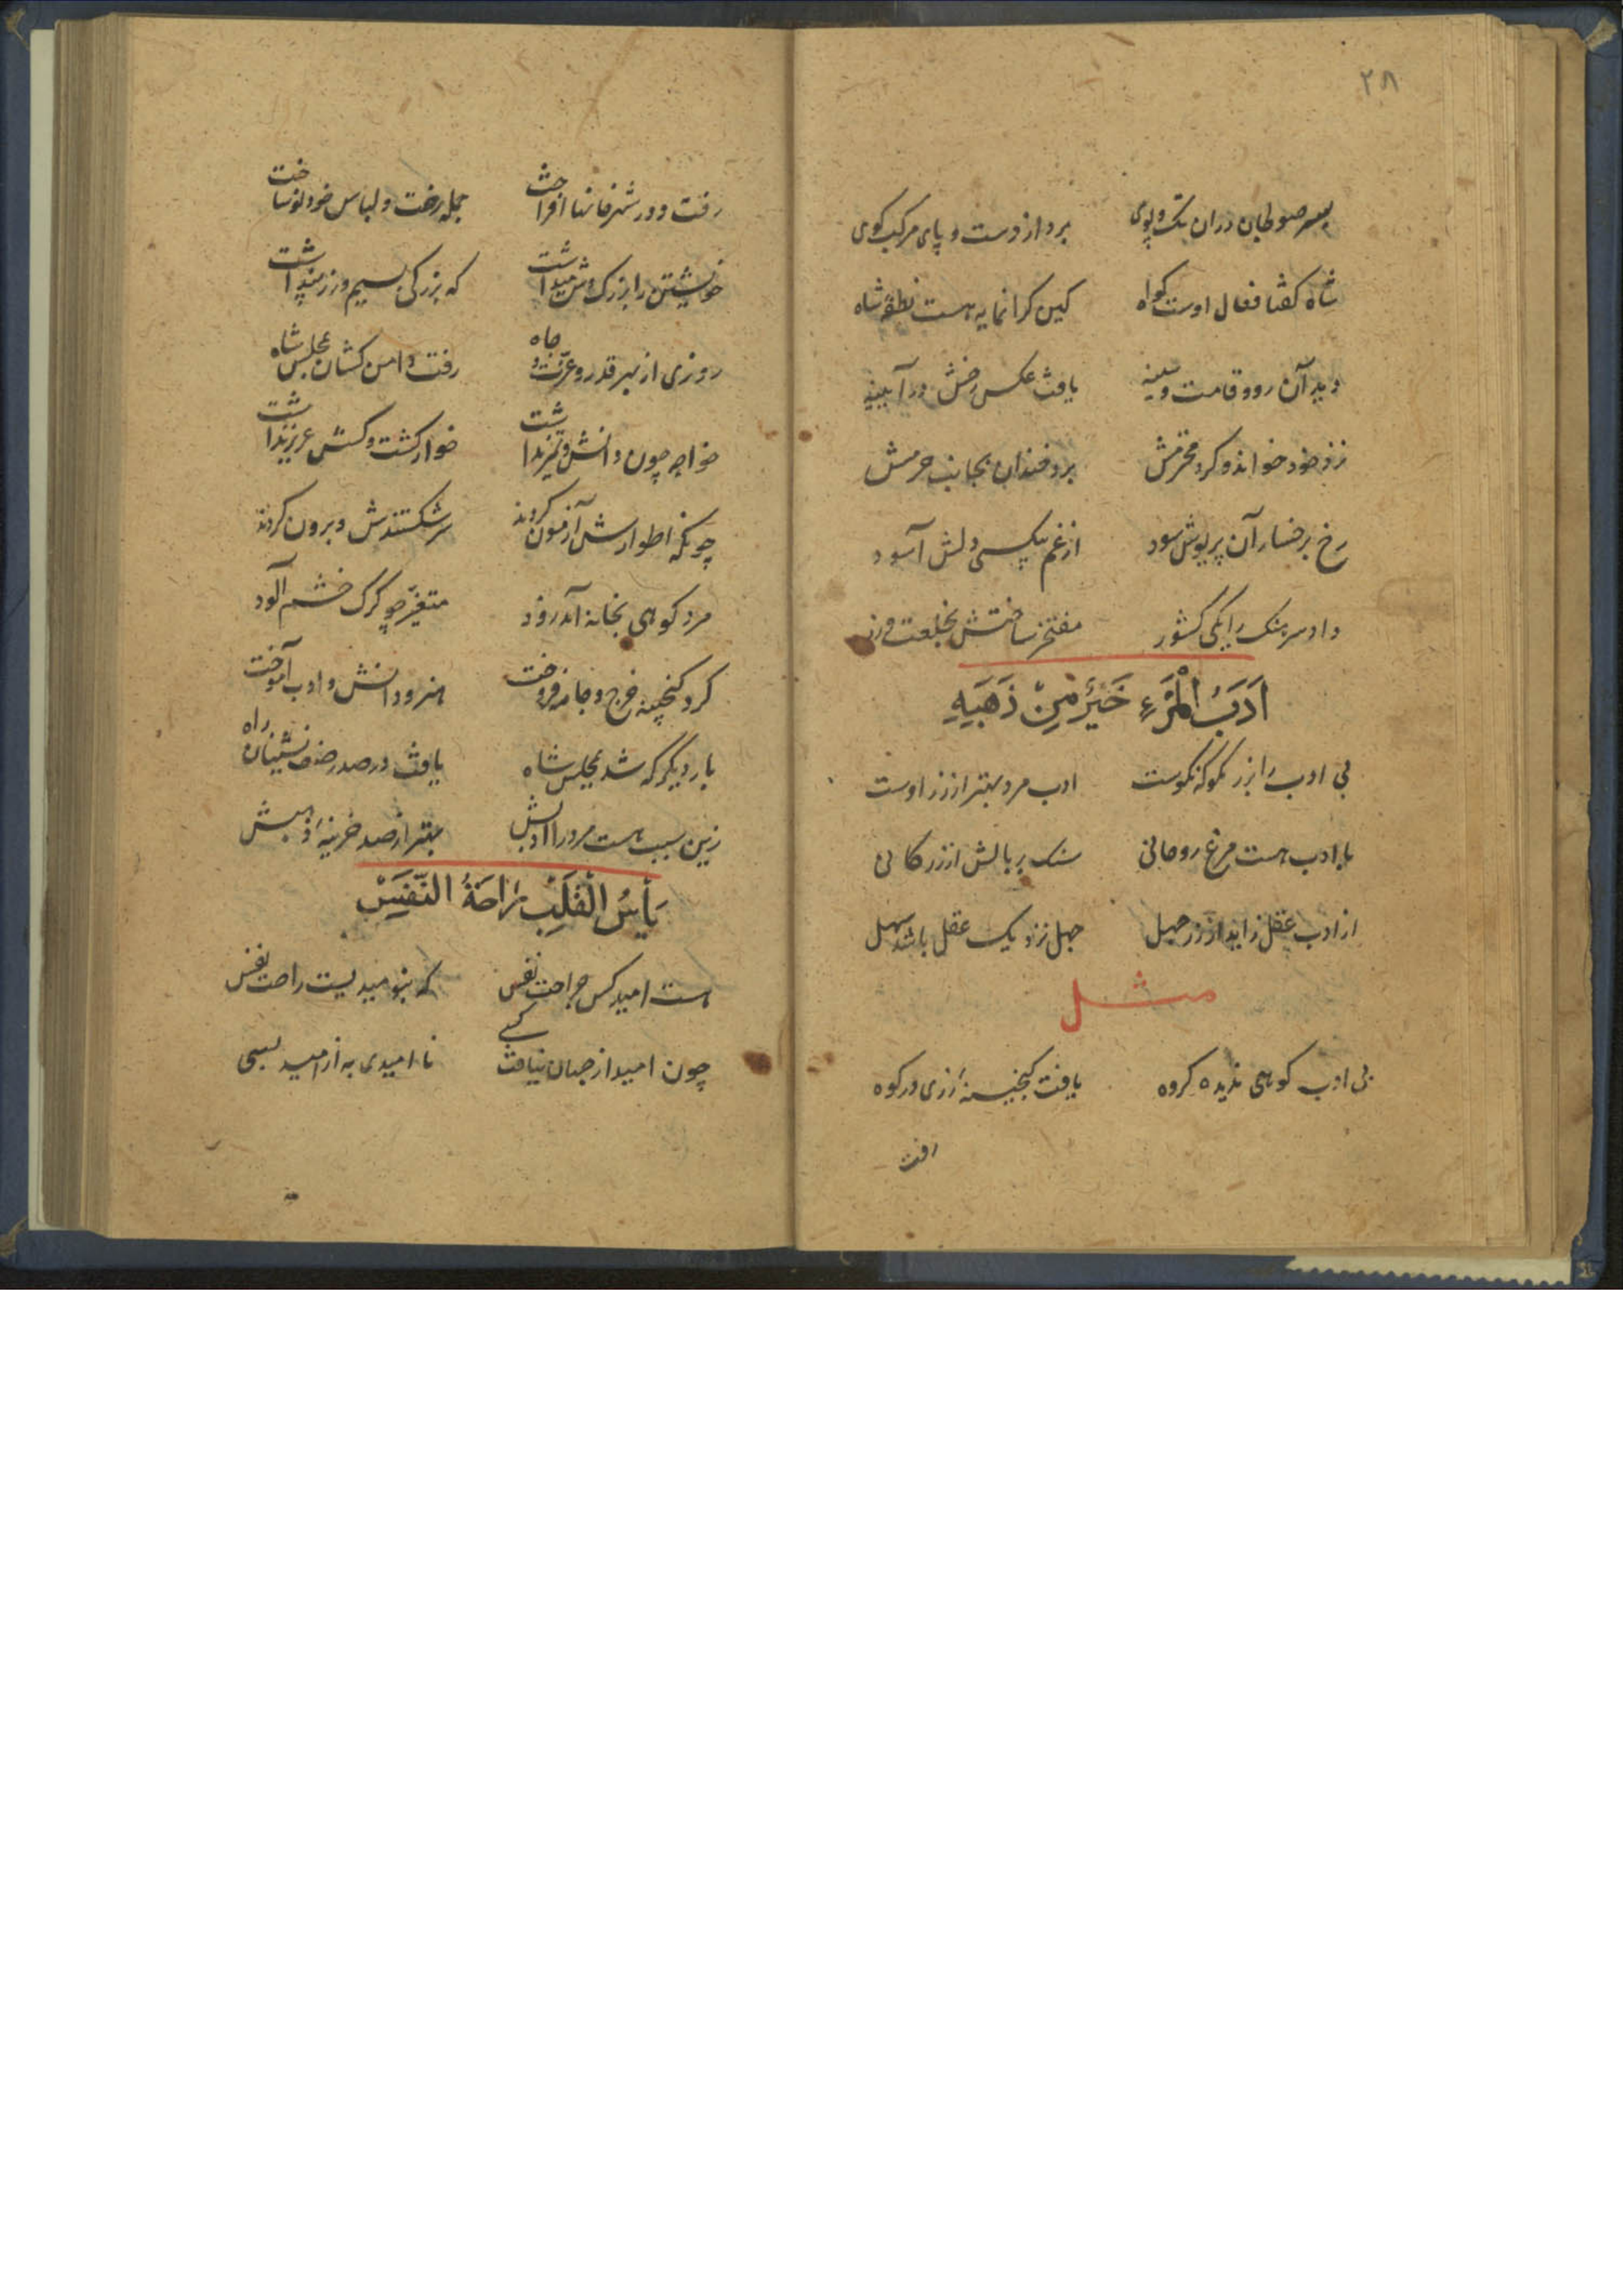 ۲۸
بسر صولجان دران تک و پوی برد از دست و پای مرکب کوی
شاه کفتا فعال اوست کواه کین کرانمایه هست نطفه شاه
دید آن رو و قامت و سینه یافت عکس رخش در آیینه
نزد خود خواند و کرد محترمش برد خندان بجانب حرمش
رخ برخسار آن پریوش سود از غم بیکسی دلش آسود
داد سرهنک را یکی کشور مفتخر ساختش بخلعت و زر
اَدَبُ الْمَرْءِ خَیْرٌ مِنْ ذَهَبِهِ
بی ادب را بزر مکو که نکوست ادب مرد بهتر از زر اوست
با ادب هست مرغ روحانی سنک بر بالش از زر کانی
از ادب عقل زاید از زر جهل جهل نزدیک عقل باشد سهل
مثل
بی ادب کوهی ندیده کروه یافت کنجینه زری در کوه
رفت
رفت و در شهر خانها افراخت جمله رخت و لباس خود نو ساخت
خویشتن را بزرک وش میداشت که بزرکی بسیم و زر پنداشت
روزی از بهر قدر و عزت و جاه رفت دامن کشان بمجلس شاه
خواجه چون دانش و تمیز نداشت خوار کشت و کسش عزیز نداشت
چونکه اطوارش آزمون کردند سر شکستندش و برون کردند
مرد کوهی بخانه آمد زود متغیر چو کرک خشم آلود
کرد کنجینه خرج و جامه فروخت هنر و دانش و ادب آموخت
بار دیکر که شد بمجلس شاه یافت در صدر صف نشینان راه
زین سبب هست مرد را ادبش بهتر از صد خزینهٔ ذهبش
یَأْسُ الْقَلْبِ رَاحَةُ النَّفْسِ
هست امید کس جراحت نفس که بنومیدیست راحت نفس
چون امید از جهان نیافت کسے نا امیدی به از امید بسی